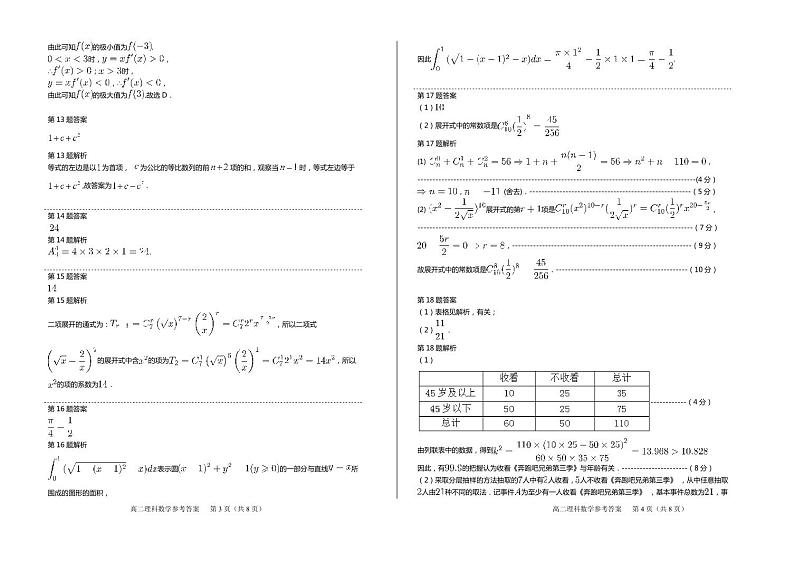 由此可知f(x)的极小值为f(−3).
0 < x < 3时，y = xf′(x) > 0，
∴f′(x) > 0；x > 3时，
y = xf′(x) < 0，∴f′(x) < 0，
由此可知f(x)的极大值为f(3).故选D．
第 13 题答案
1 + c + c²
第 13 题解析
等式的左边是以1为首项，c为公比的等比数列的前n + 2项的和，观察当n − 1时，等式左边等于
1 + c + c²,故答案为1 + c − c²．
第 14 题答案
24
第 14 题解析
A₄⁴ = 4 × 3 × 2 × 1 = 24.
第 15 题答案
14
第 15 题解析
二项展开的通式为：，所以二项式
的展开式中含x²的项为T₂ = C₇¹(√x)⁶(2/x)¹ = C₇¹2¹x² = 14x²，所以
x²的项的系数为14．
第 16 题答案
π/4 − 1/2
第 16 题解析
∫₀¹(√1 (x 1)² x)dx表示圆(x 1)² + y² 1(y ⩾ 0)的一部分与直线y − x所
围成的图形的面积，
高二理科数学参考答案 第 3 页（共 8 页）
因此∫₀¹(√1 − (x − 1)² − x)dx = π × 1²/4 − 1/2 × 1 × 1 = π/4 − 1/2.
第 17 题答案
（1）10
（2）展开式中的常数项是C₁₀⁸(1/2)⁸ − 45/256
第 17 题解析
(1) Cₙ⁰ + Cₙ¹ + Cₙ² = 56 ⇒ 1 + n + n(n − 1)/2 = 56 ⇒ n² + n 110 = 0，
（4 分）
⇒ n = 10，n −11 (舍去)．（ 5 分）
(2) (x² − 1/2√x)¹⁰展开式的第r + 1项是C₁₀ʳ(x²)¹⁰⁻ʳ(1/2√x)ʳ = C₁₀ʳ(1/2)ʳx^(20−5r/2)，
（ 7 分）
20 5r/2 = 0 > r = 8，（ 9 分）
故展开式中的常数项是C₁₀⁸(1/2)⁸ 45/256．（ 10 分）
第 18 题答案
（1）表格见解析，有关；
（2）11/21．
第 18 题解析
（1）
收看 不收看 总计
45 岁及以上 10 25 35
45 岁以下 50 25 75
总计 60 50 110
（ 4 分）
由列联表中的数据，得到k² − 110 × (10 × 25 − 50 × 25)²/60 × 50 × 35 × 75 − 13.968 > 10.828
因此，有99.9的把握认为收看《奔跑吧兄弟第三季》与年龄有关．（ 8 分）
（2）采取分层抽样的方法抽取的7人中有2人收看，5人不收看《奔跑吧兄弟第三季》，从中任意抽取
2人由21种不同的取法．记事件A为至少有一人收看《奔跑吧兄弟第三季》，基本事件总数为21，事
高二理科数学参考答案 第 4 页（共 8 页）